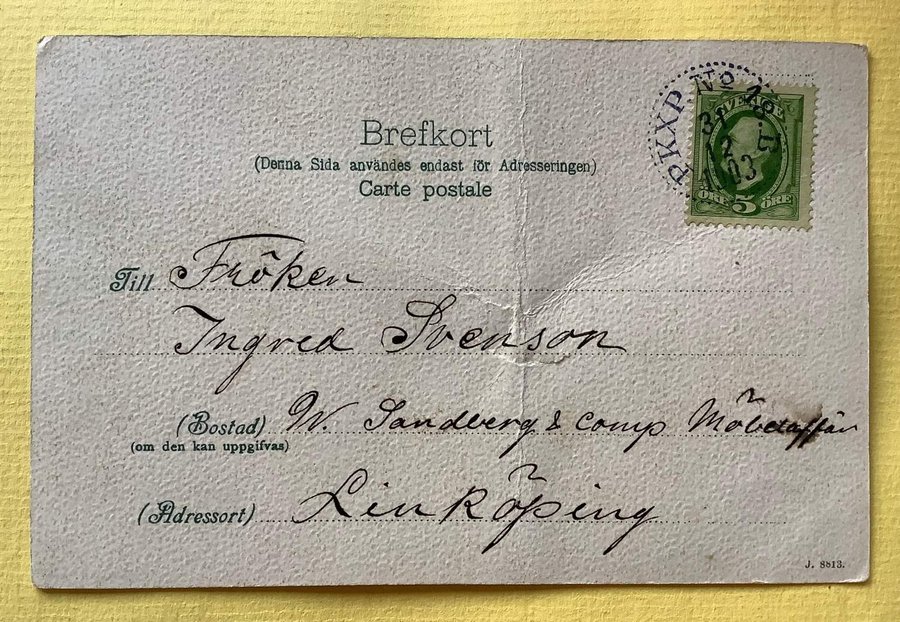 Brefkort
(Denna Sida användes endast för Adresseringen)
Carte postale
PKXP No
SVERIGE
31
12
03
ÖRE 5 ÖRE
Till Fröken
Ingred Svenson
(Bostad) W. Sandberg & Comp Möbelaffär
(om den kan uppgifvas)
(Adressort) Linköping
J. 8813.